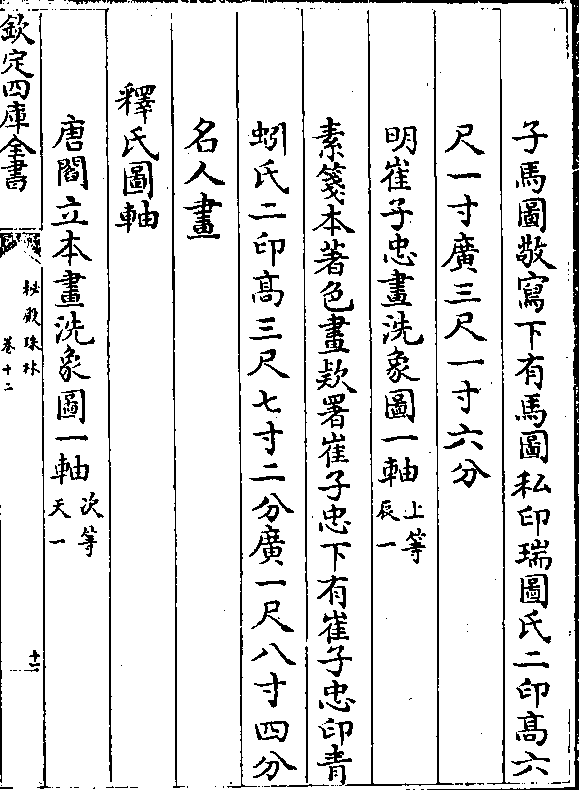 子馬圖敬寫下有馬圖私印瑞圖氏二印髙六
尺一寸廣三尺一寸六分
明崔子忠畫洗象圖一軸上等辰一
素箋本著色畫欵署崔子忠下有崔子忠印青
蚓氏二印髙三尺七寸二分廣一尺八寸四分
名人畫
釋氏圖軸
唐閻立本畫洗象圖一軸次等天一
欽定四庫全書
秘殿珠林
卷十二
十一